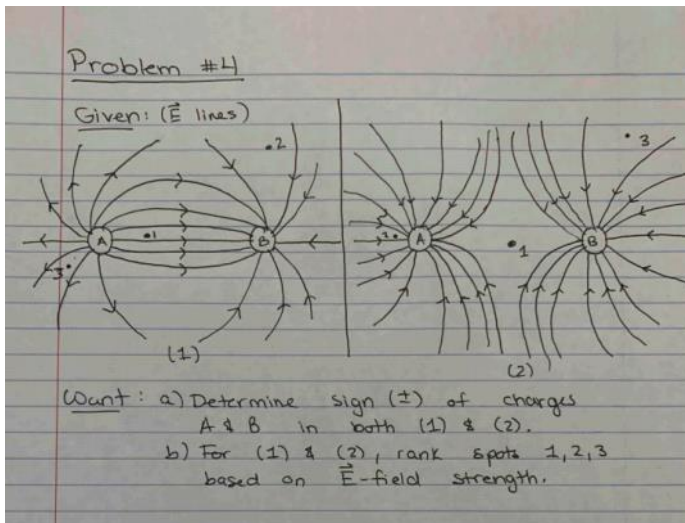 Problem #4
Given: (E⃗ lines)
•2
•3
A
•1
B
2•
A
•1
B
3•
(1)
(2)
Want: a) Determine sign (±) of charges
A & B in both (1) & (2).
b) For (1) & (2), rank spots 1,2,3
based on E⃗-field strength.